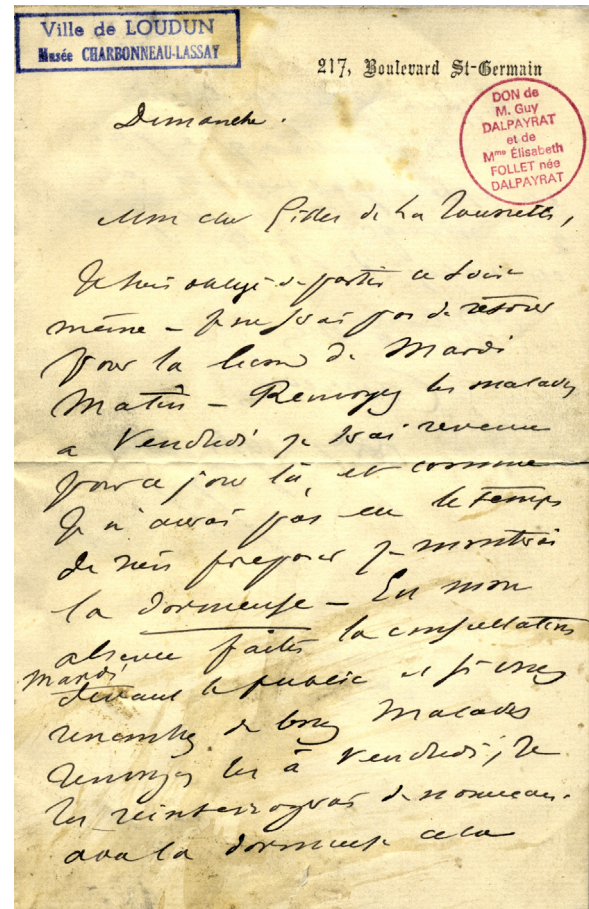 Ville de LOUDUN
Musée CHARBONNEAU-LASSAY
217, Boulevard St-Germain
DON de
M. Guy
DALPAYRAT
et de
Mme Élisabeth
FOLLET née
DALPAYRAT
Dimanche.
Mon cher Gilles de la Tourette,
Je suis obligé de partir ce soir
même – Je ne serai pas de retour
pour la leçon de Mardi
Matin – Renvoyez les malades
a Vendredi je serai revenu
pour ce jour là, et comme
Je n'aurai pas eu le temps
de rien préparer je montrerai
la dormeuse – En mon
absence faites la consultation
mardi
devant le public et si vous
rencontrez de bons Malades
renvoyez les à Vendredi; Je
les réinterrogerai de nouveau.
avec la dormeuse cela